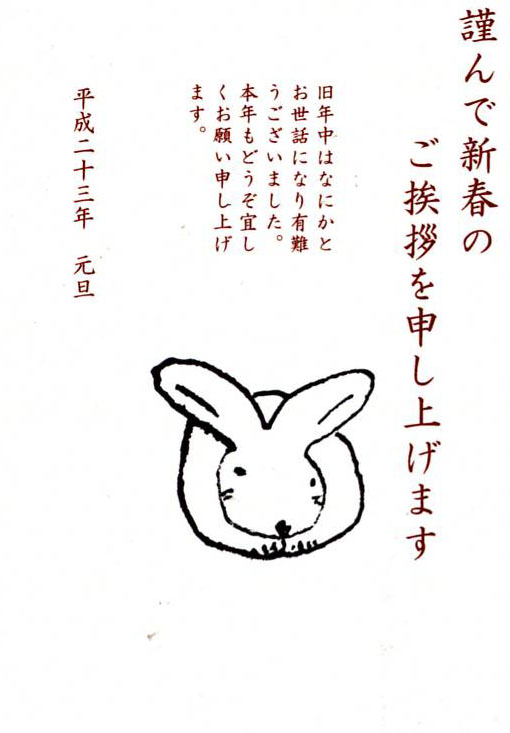 謹んで新春の
ご挨拶を申し上げます
旧年中はなにかと
お世話になり有難
うございました。
本年もどうぞ宜し
くお願い申し上げ
ます。
平成二十三年　元旦